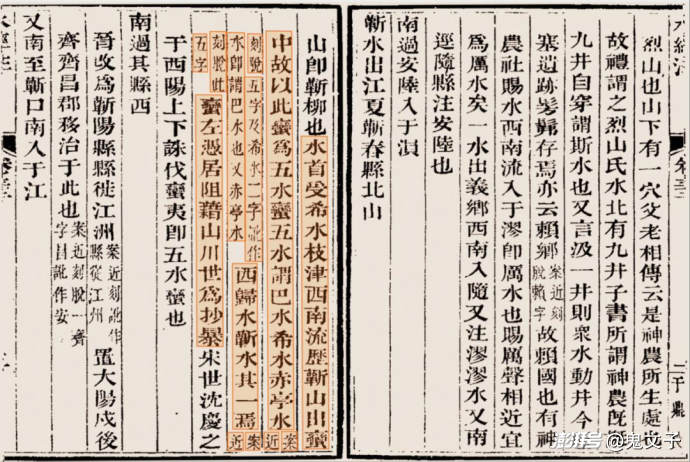 烈山也山下有一穴父老相傳云是神農所生處也
故禮謂之烈山氏水北有九井子書所謂神農既誕
九井自穿謂斯水也又言汲一井則衆水動井今
塞遺跡髣髴存焉亦云賴鄉案近刻脫賴字故賴國也有神
農社賜水西南流入于漻即厲水也賜厲聲相近宜
爲厲水矣一水出義鄉西南入隨又注漻漻水又南
逕隨縣注安陸也
南過安陸入于溳
蘄水出江夏蘄春縣北山
山即蘄柳也水首受希水枝津西南流歷蘄山出蠻
中故以此蠻爲五水蠻五水謂巴水希水赤亭水案近
刻脫五字及希水二字訛作水即謂巴水也又赤亭水西歸水蘄水其一焉案近
刻脫此五字蠻左憑居阻藉山川世爲抄暴宋世沈慶之
于西陽上下誅伐蠻夷即五水蠻也
南過其縣西
晉改爲蘄陽縣縣徙江洲案近刻訛作縣從江州置大陽戍後
齊齊昌郡移治于此也案近刻脫一齊字昌訛作安
又南至蘄口南入于江
水經注
卷三十二
澎湃号 @瑰文子